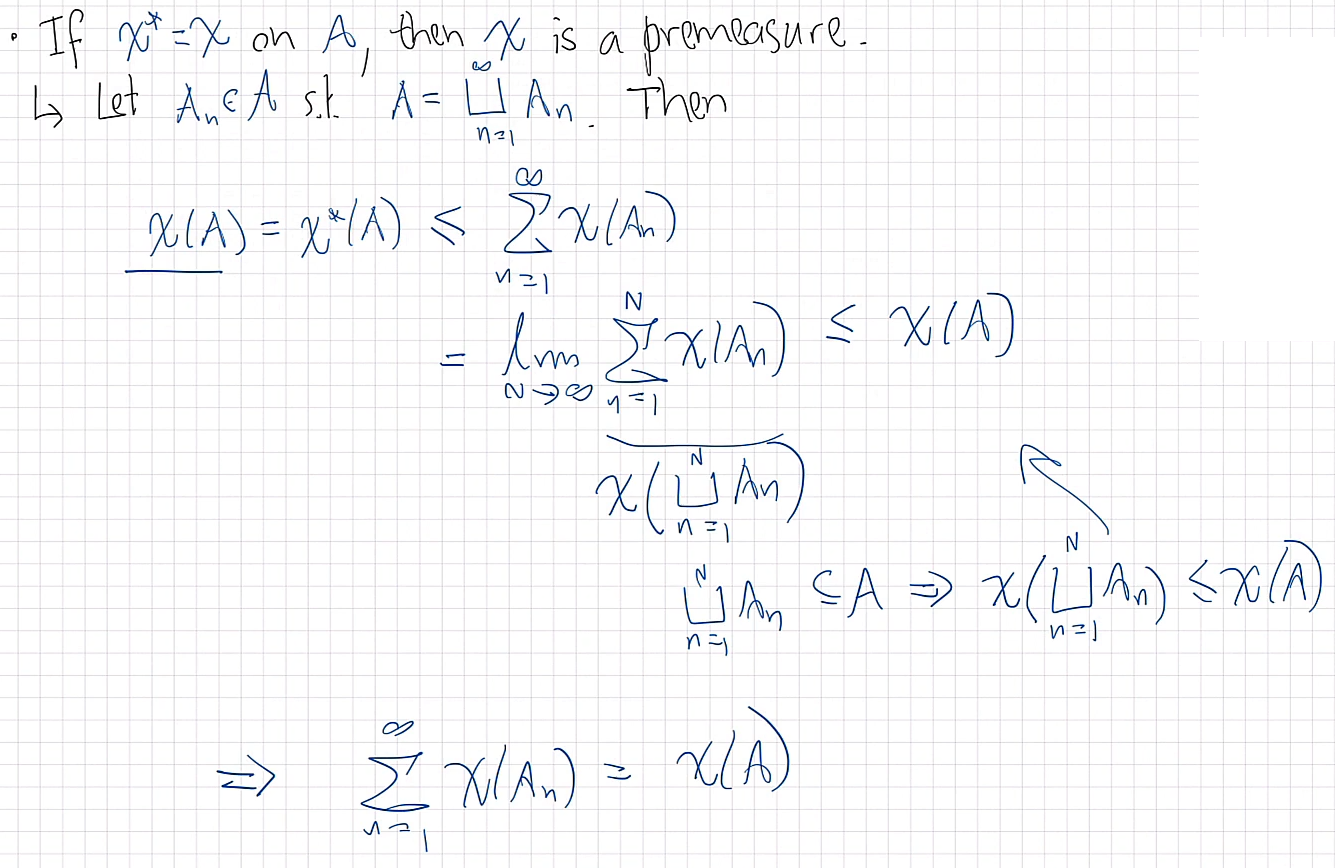 • If χ* = χ on A, then χ is a premeasure.
↳ Let Aₙ ∈ A s.t. A = ⨆_{n=1}^{∞} Aₙ. Then
χ(A) = χ*(A) ≤ ∑_{n=1}^{∞} χ(Aₙ)
= lim_{N→∞} ∑_{n=1}^{N} χ(Aₙ) ≤ χ(A)
χ(⨆_{n=1}^{N} Aₙ)
⨆_{n=1}^{N} Aₙ ⊆ A ⇒ χ(⨆_{n=1}^{N} Aₙ) ≤ χ(A)
⇒ ∑_{n=1}^{∞} χ(Aₙ) = χ(A)